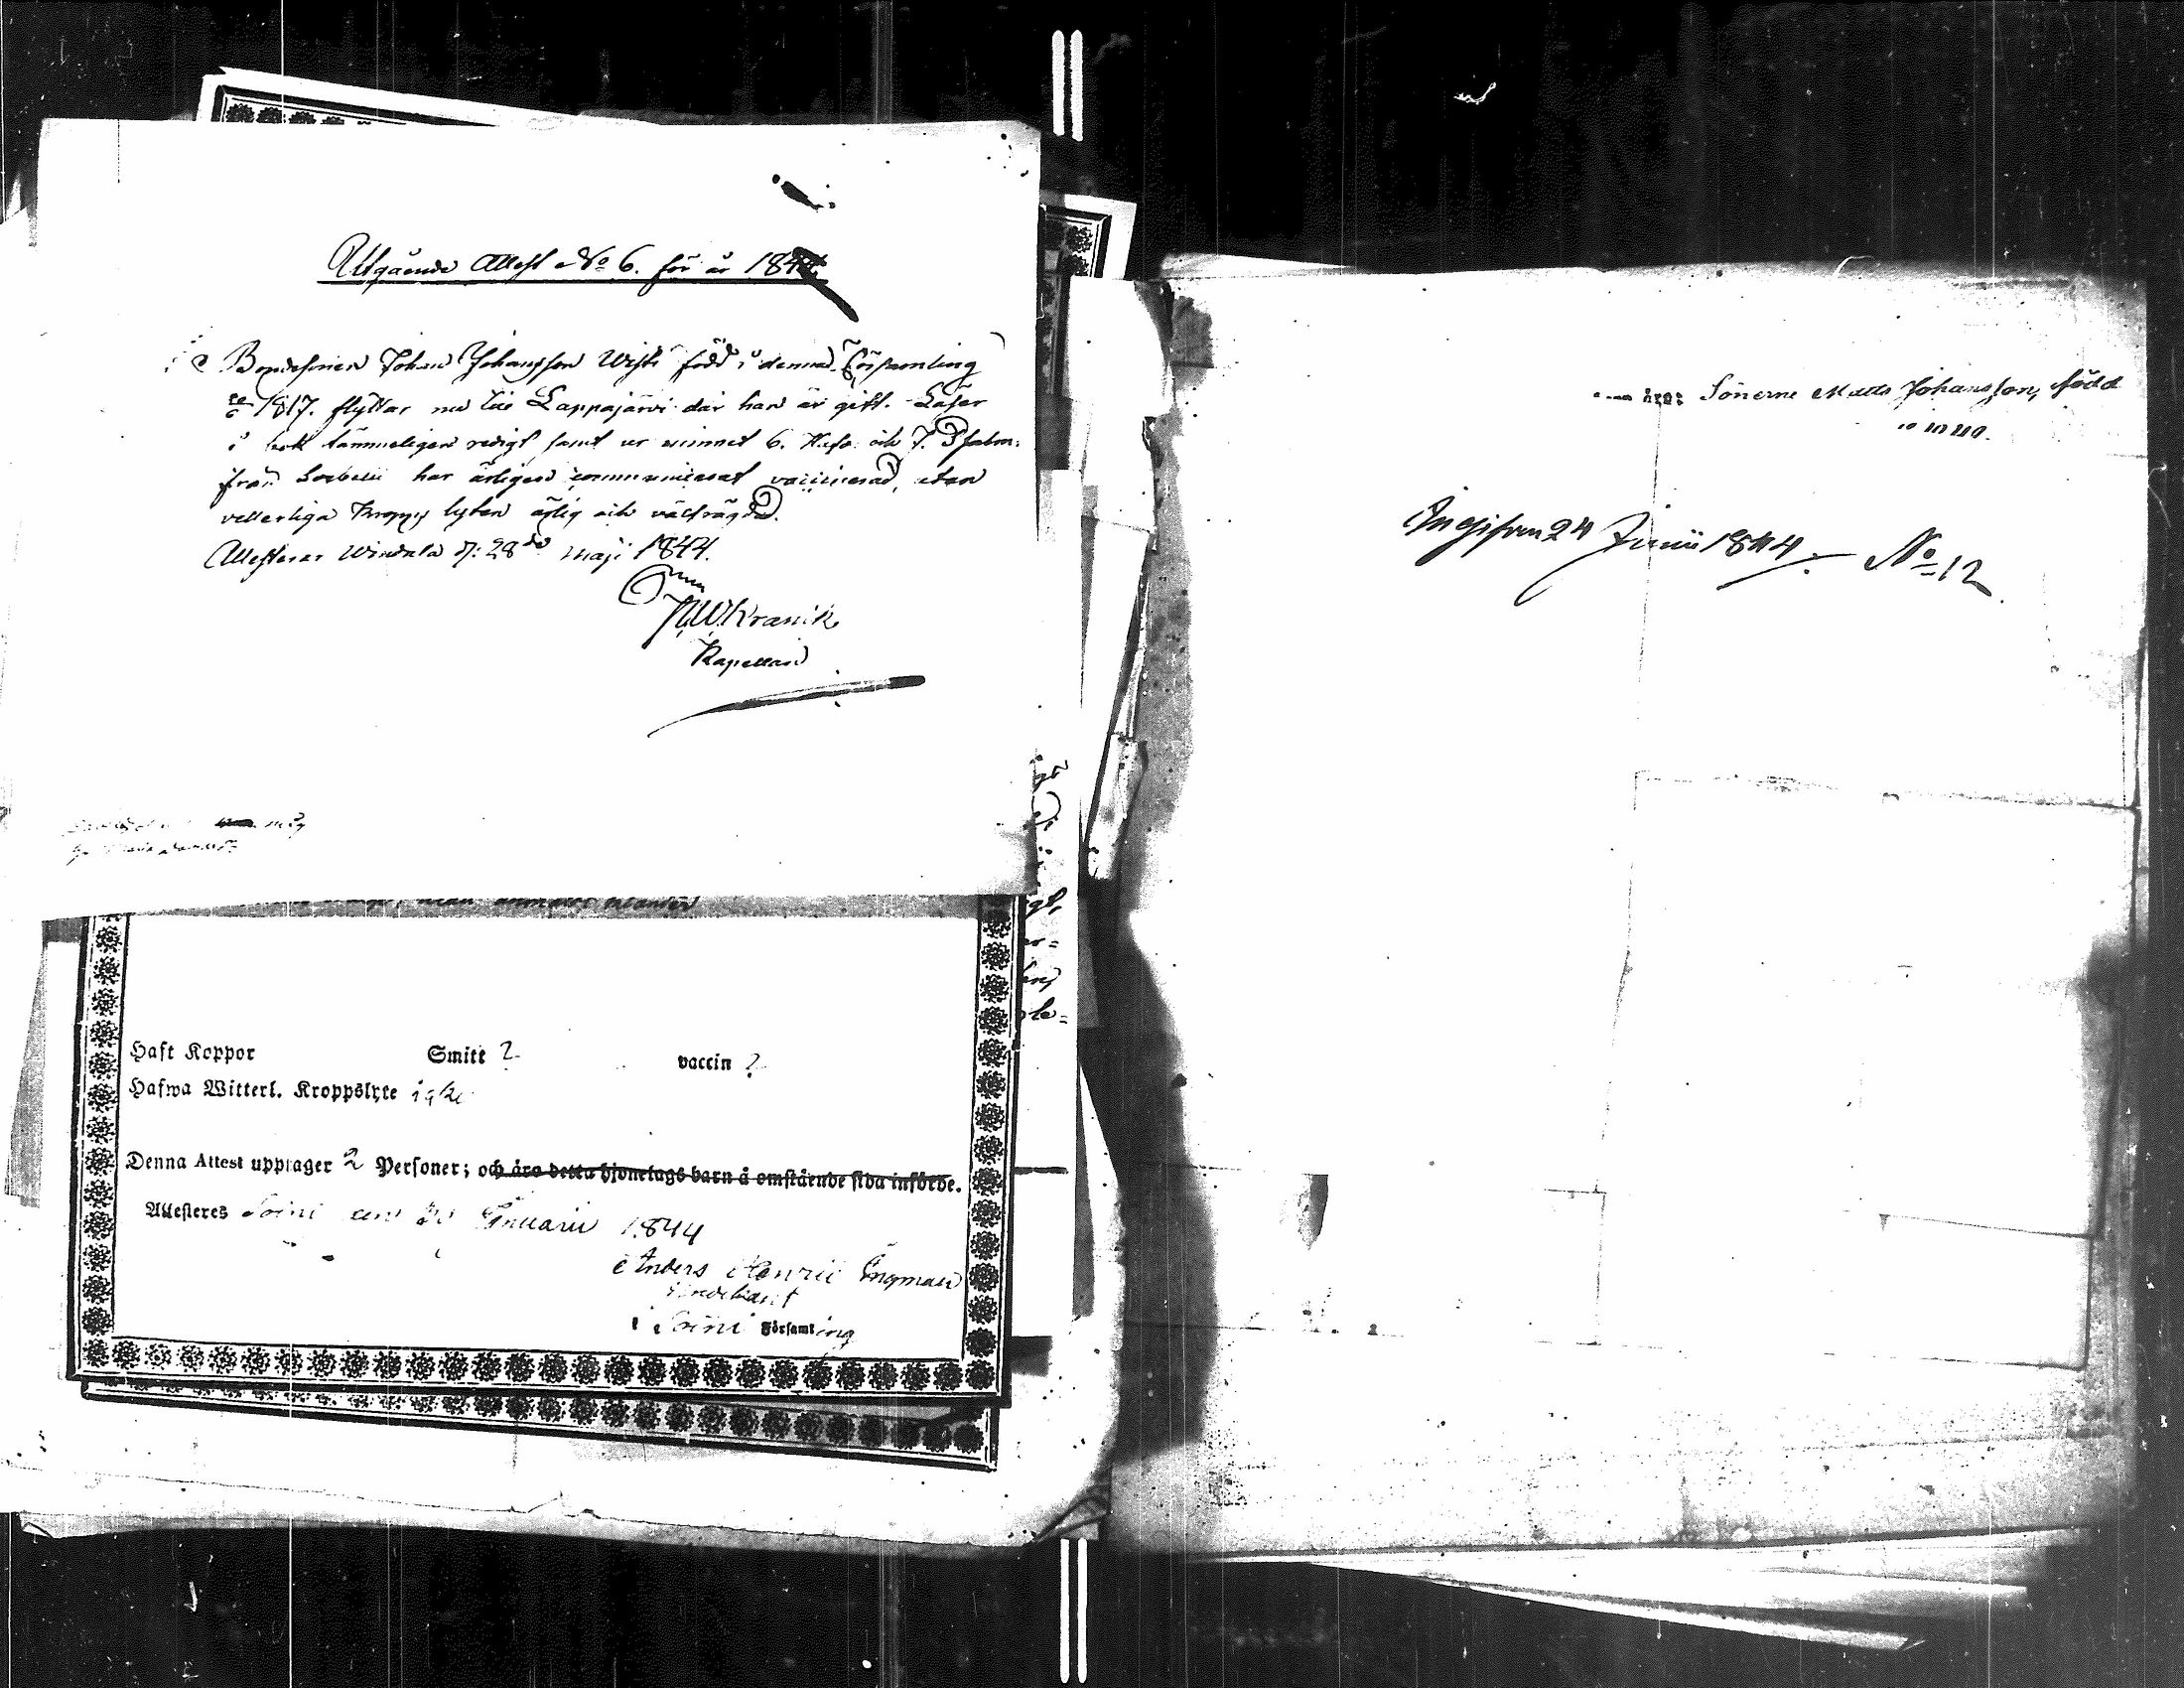 Utgående Attest No 6. för år 1844
Bondesonen Johan Johansson Wisti född i denna Församling
1817. flyttar nu till Lappajärvi där han är gift. Läser
i bok tämmeligen redigt samt ur minnet 6. Huf. och 7. Psalm.
från Svebelii har årligen communicerat vaccinerad, utan
vetterliga kropps lyten ärlig och välfrägdad.
Attesterar Windala d: 28de Maji 1844.
Kapellan
Haft Koppor Smitt ? vaccin ?
Hafwa Witterl. Kroppslyte icke
Denna Attest upptager 2 Personer; och äro detta hjonelags barn å omstående sida införde.
Attesteres Soini den Januarii 1844
Anders Henric Ingman
Predikant
i Soini Församling
Sönerne Matts Johansson, född
Ingifven 24 Junii 1844. No 12